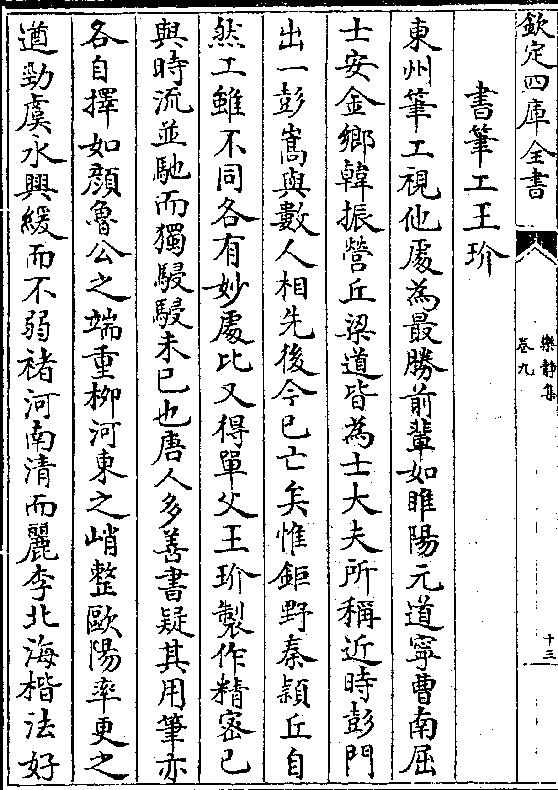 欽定四庫全書
樂靜集
卷九
十三
書筆工王玠
東州筆工視他處為最勝前輩如睢陽元道寧曹南屈
士安金鄉韓振營丘梁道皆為士大夫所稱近時彭門
出一彭嵩與數人相先後今已亡矣惟鉅野秦頴丘自
然工雖不同各有妙處比又得單父王玠製作精密已
與時流並馳而獨駸駸未已也唐人多善書疑其用筆亦
各自擇如顔魯公之端重柳河東之峭整歐陽率更之
遒勁虞永興緩而不弱褚河南清而麗李北海楷法好